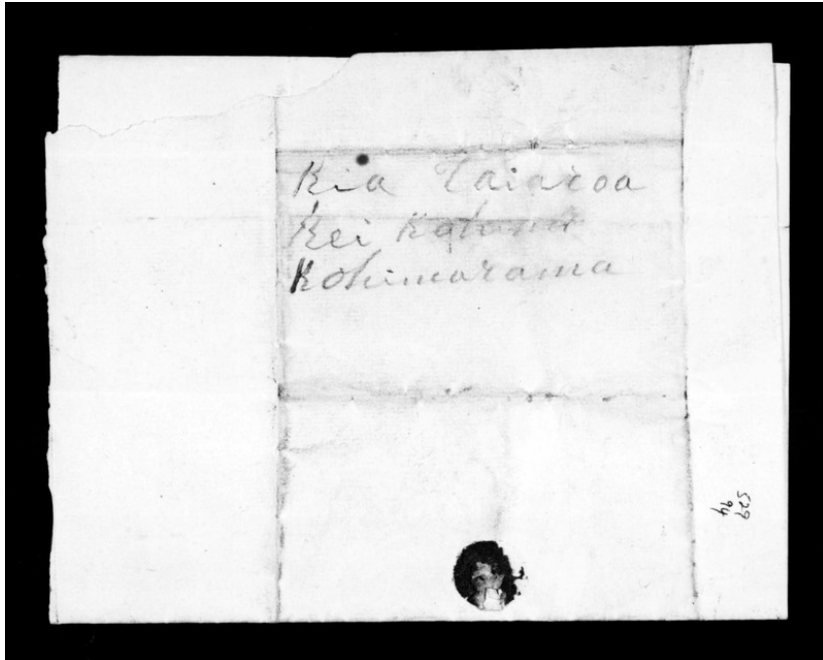 Kia Taiaroa
Kei
Kohimarama
529
94